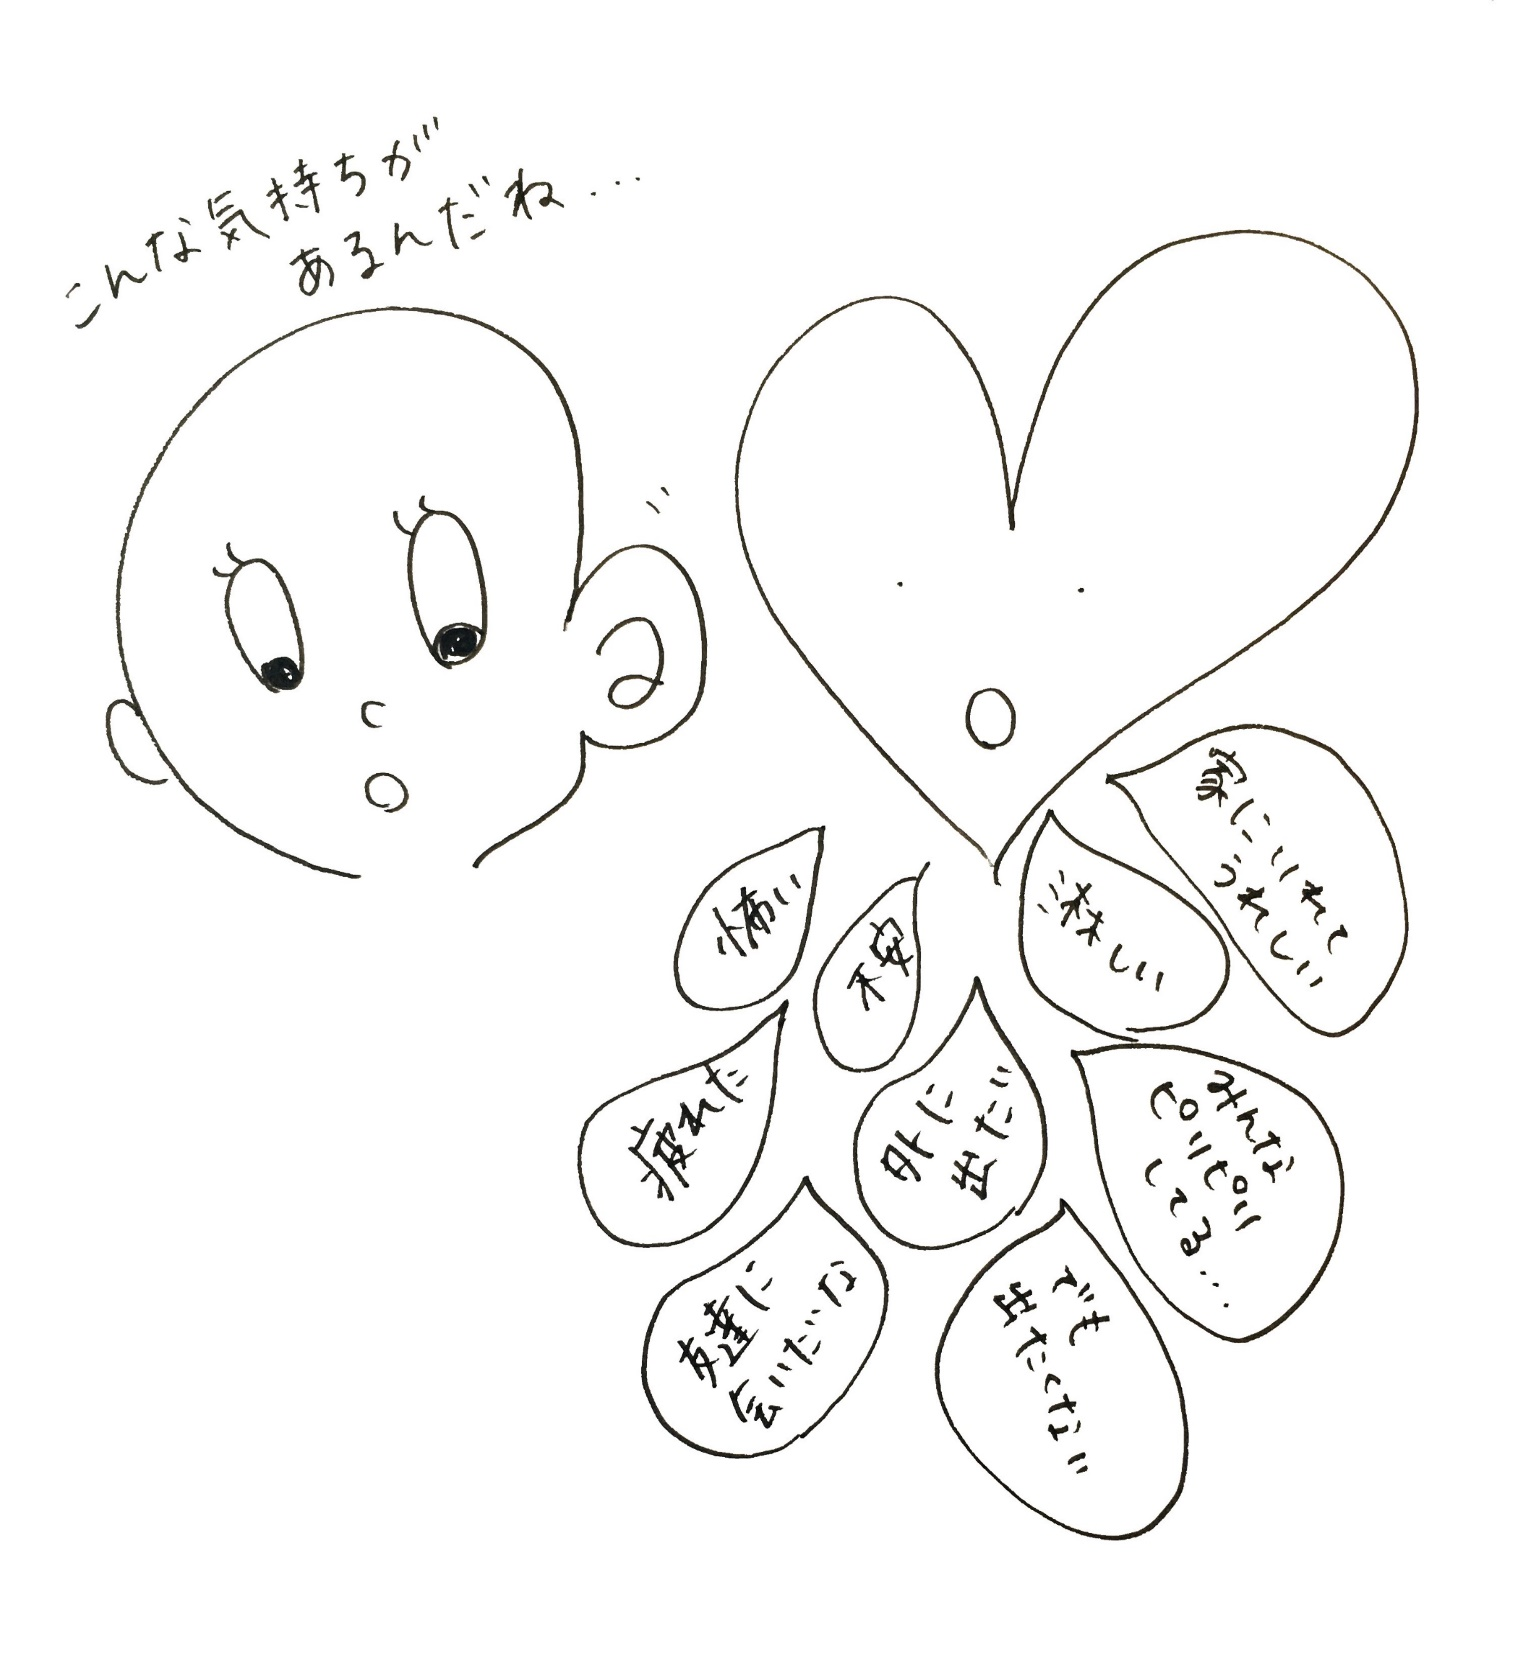 こんな気持ちが
あるんだね...
怖い
不安
淋しい
家にいれて
うれしい
疲れた
外に
出だ
みんな
ピリピリ
してる...
友達に
会いだいな
でも
出たくない